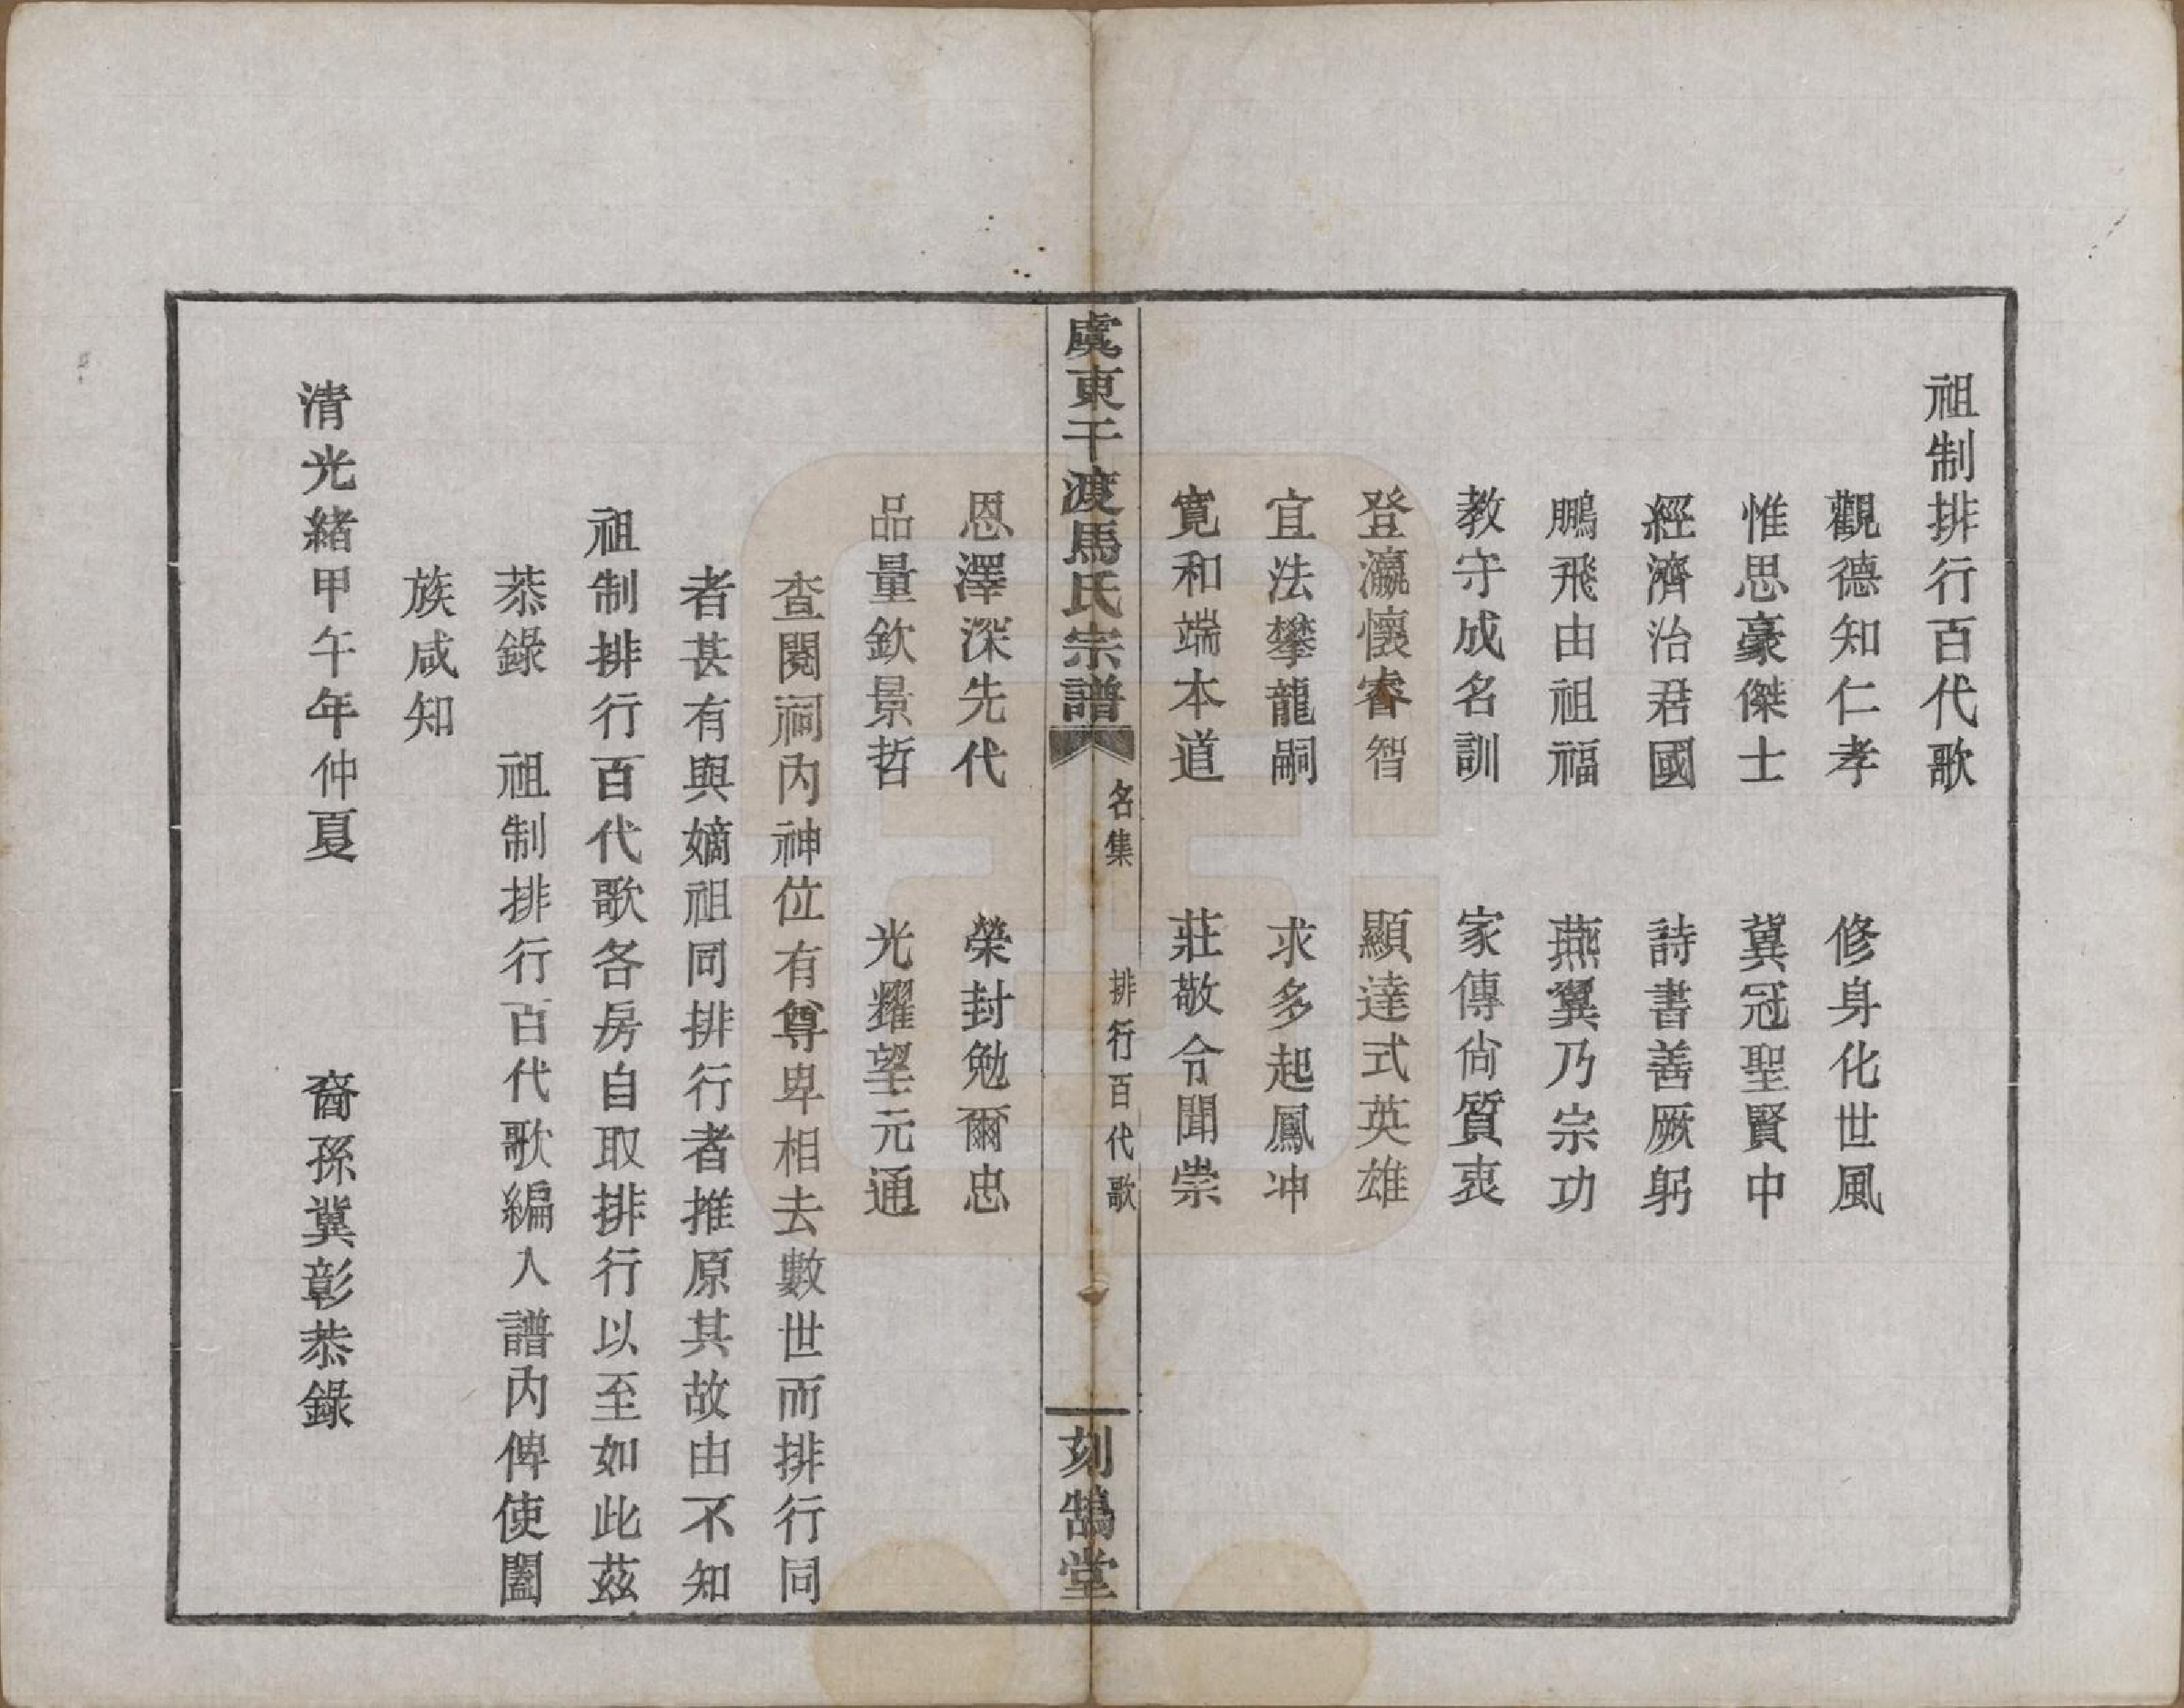 祖制排行百代歌
觀德知仁孝　修身化世風
惟思豪傑士　冀冠聖賢中
經濟治君國　詩書善厥躬
鵬飛由祖福　燕翼乃宗功
教守成名訓　家傳尙質衷
登瀛懷睿智　顯達式英雄
宜法攀龍嗣　求多起鳳冲
寬和端本道　莊敬令聞崇
虞東干渡馬氏宗譜　名集　排行百代歌　刻鵠堂
恩澤深先代　榮封勉爾忠
品量欽景哲　光耀望元通
查閱祠內神位有尊卑相去數世而排行同
者甚有與嫡祖同排行者推原其故由不知
祖制排行百代歌各房自取排行以至如此茲
恭錄　祖制排行百代歌編入譜內俾使闔
族咸知
清光緒甲午年仲夏　裔孫冀彰恭錄